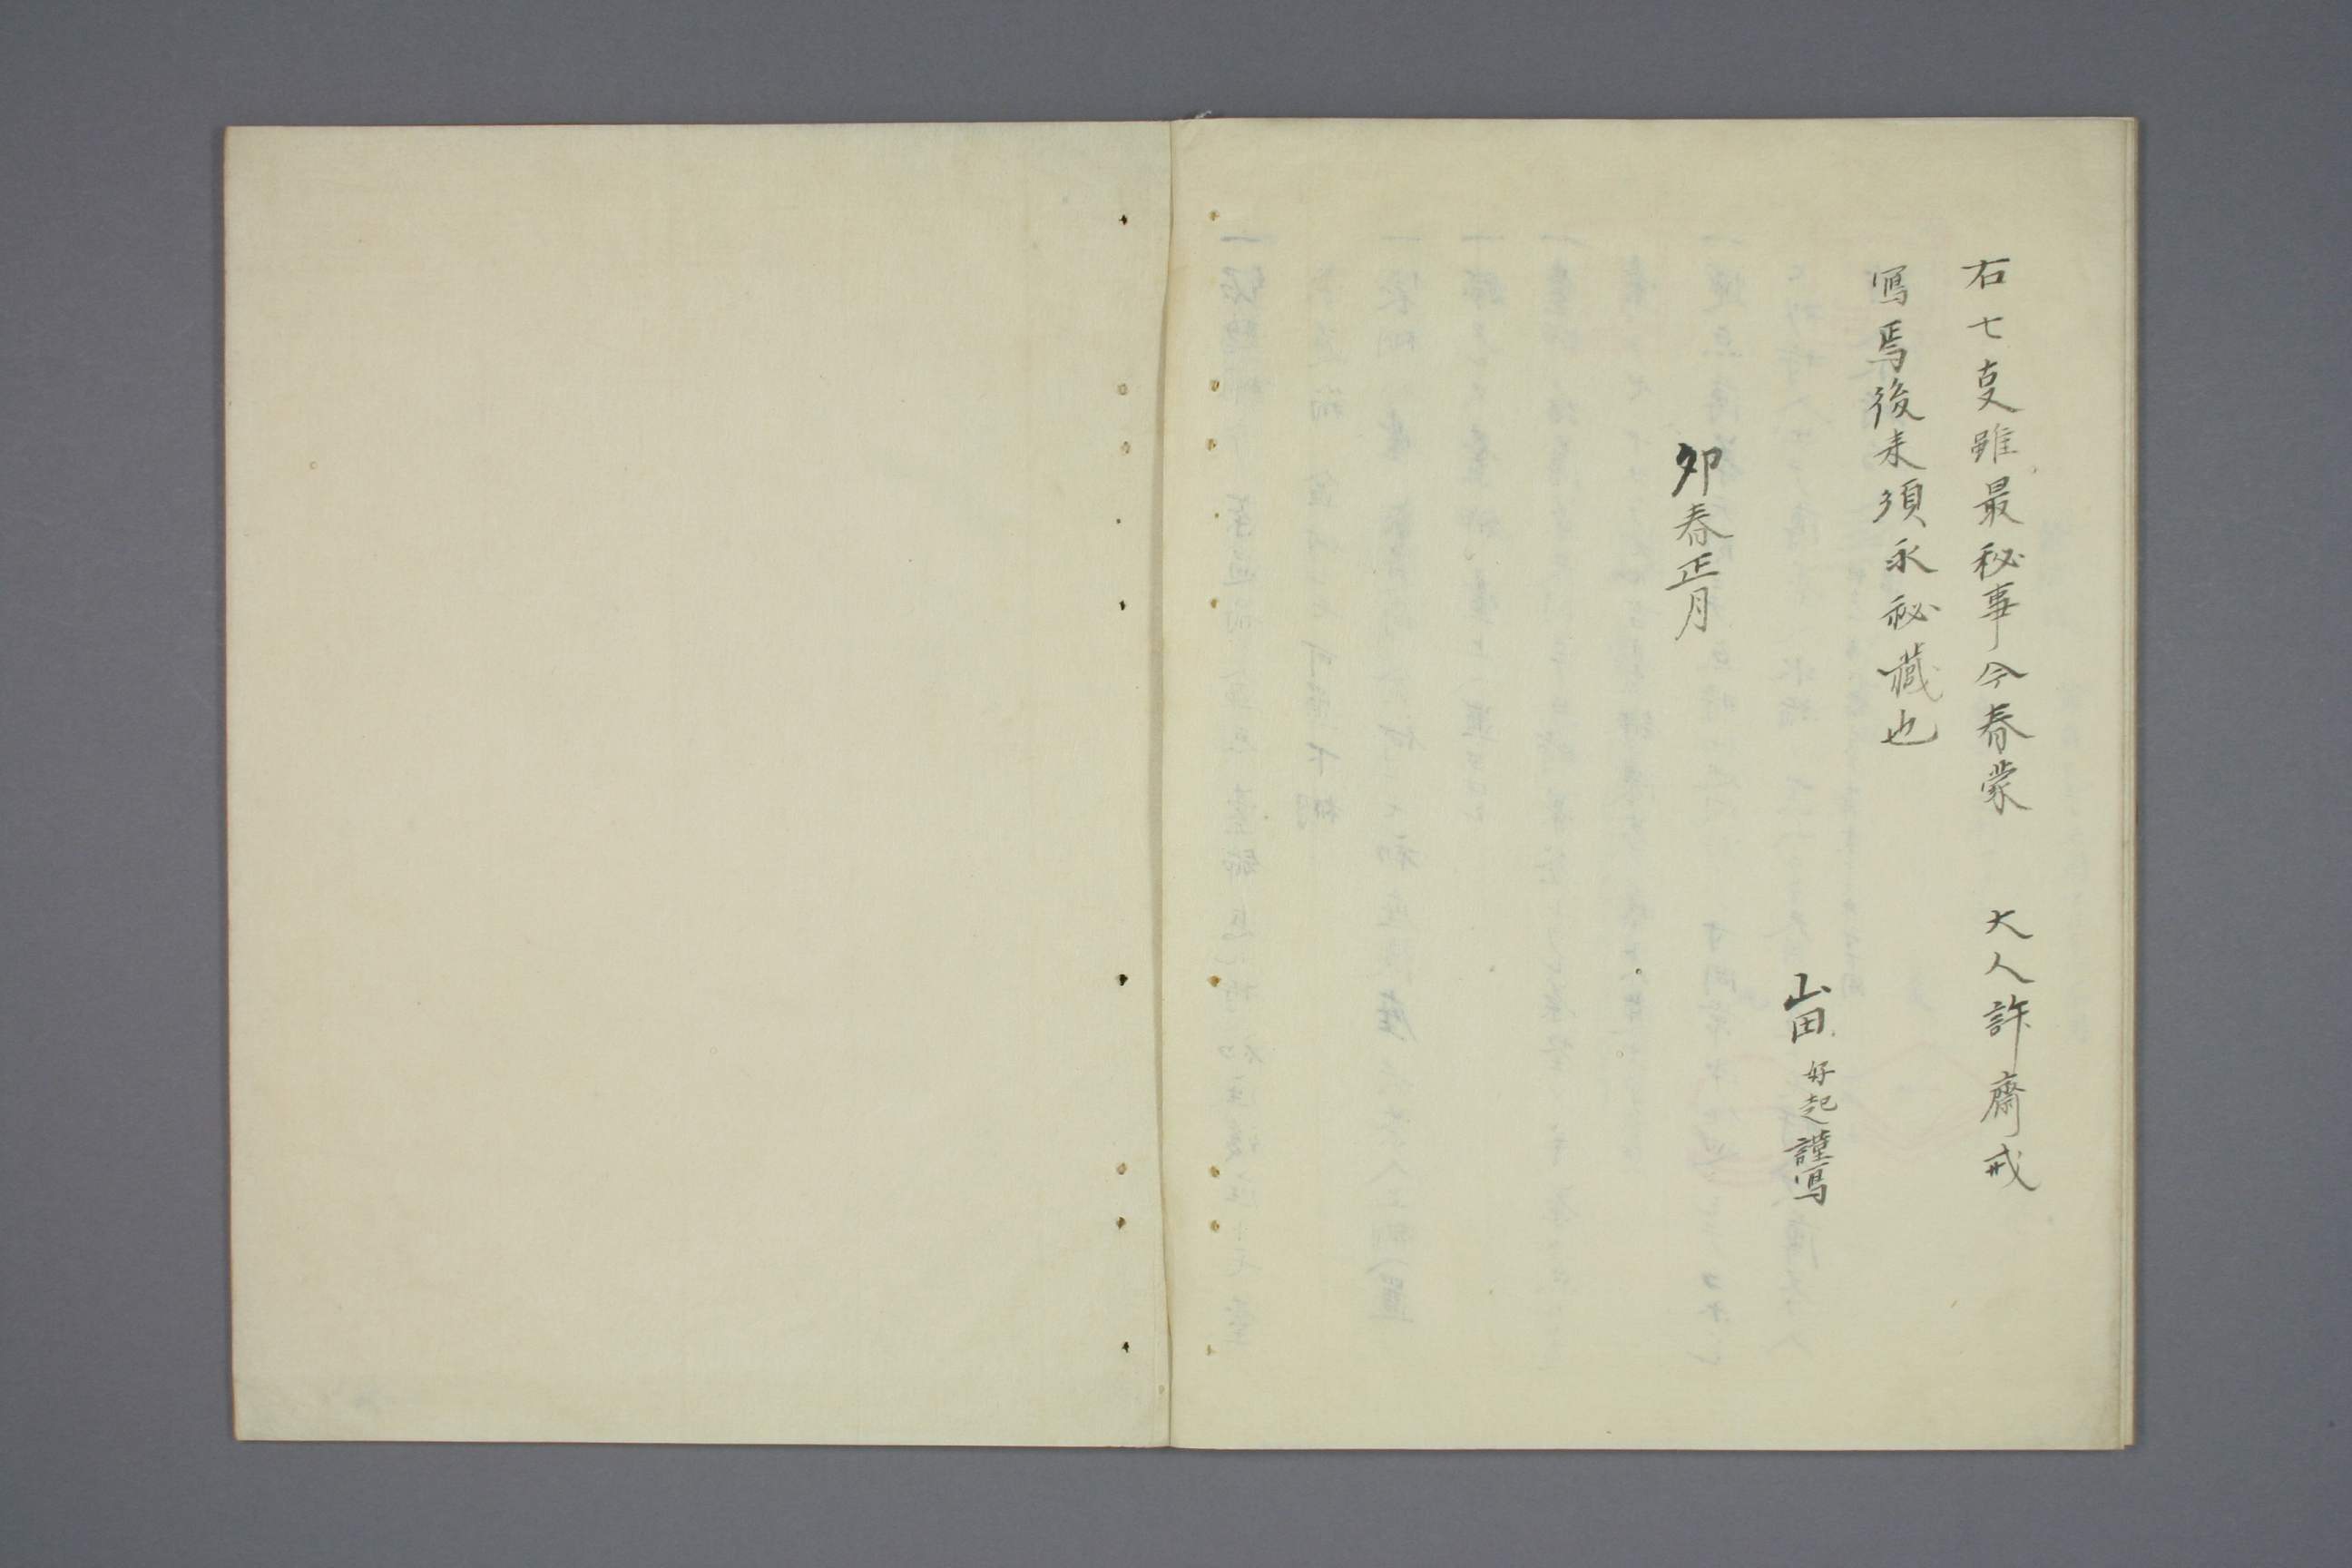 右七㕝雖最秘事今春蒙　大人許齋戒
寫焉後来須永秘藏也
山田好起謹寫
夘春正月